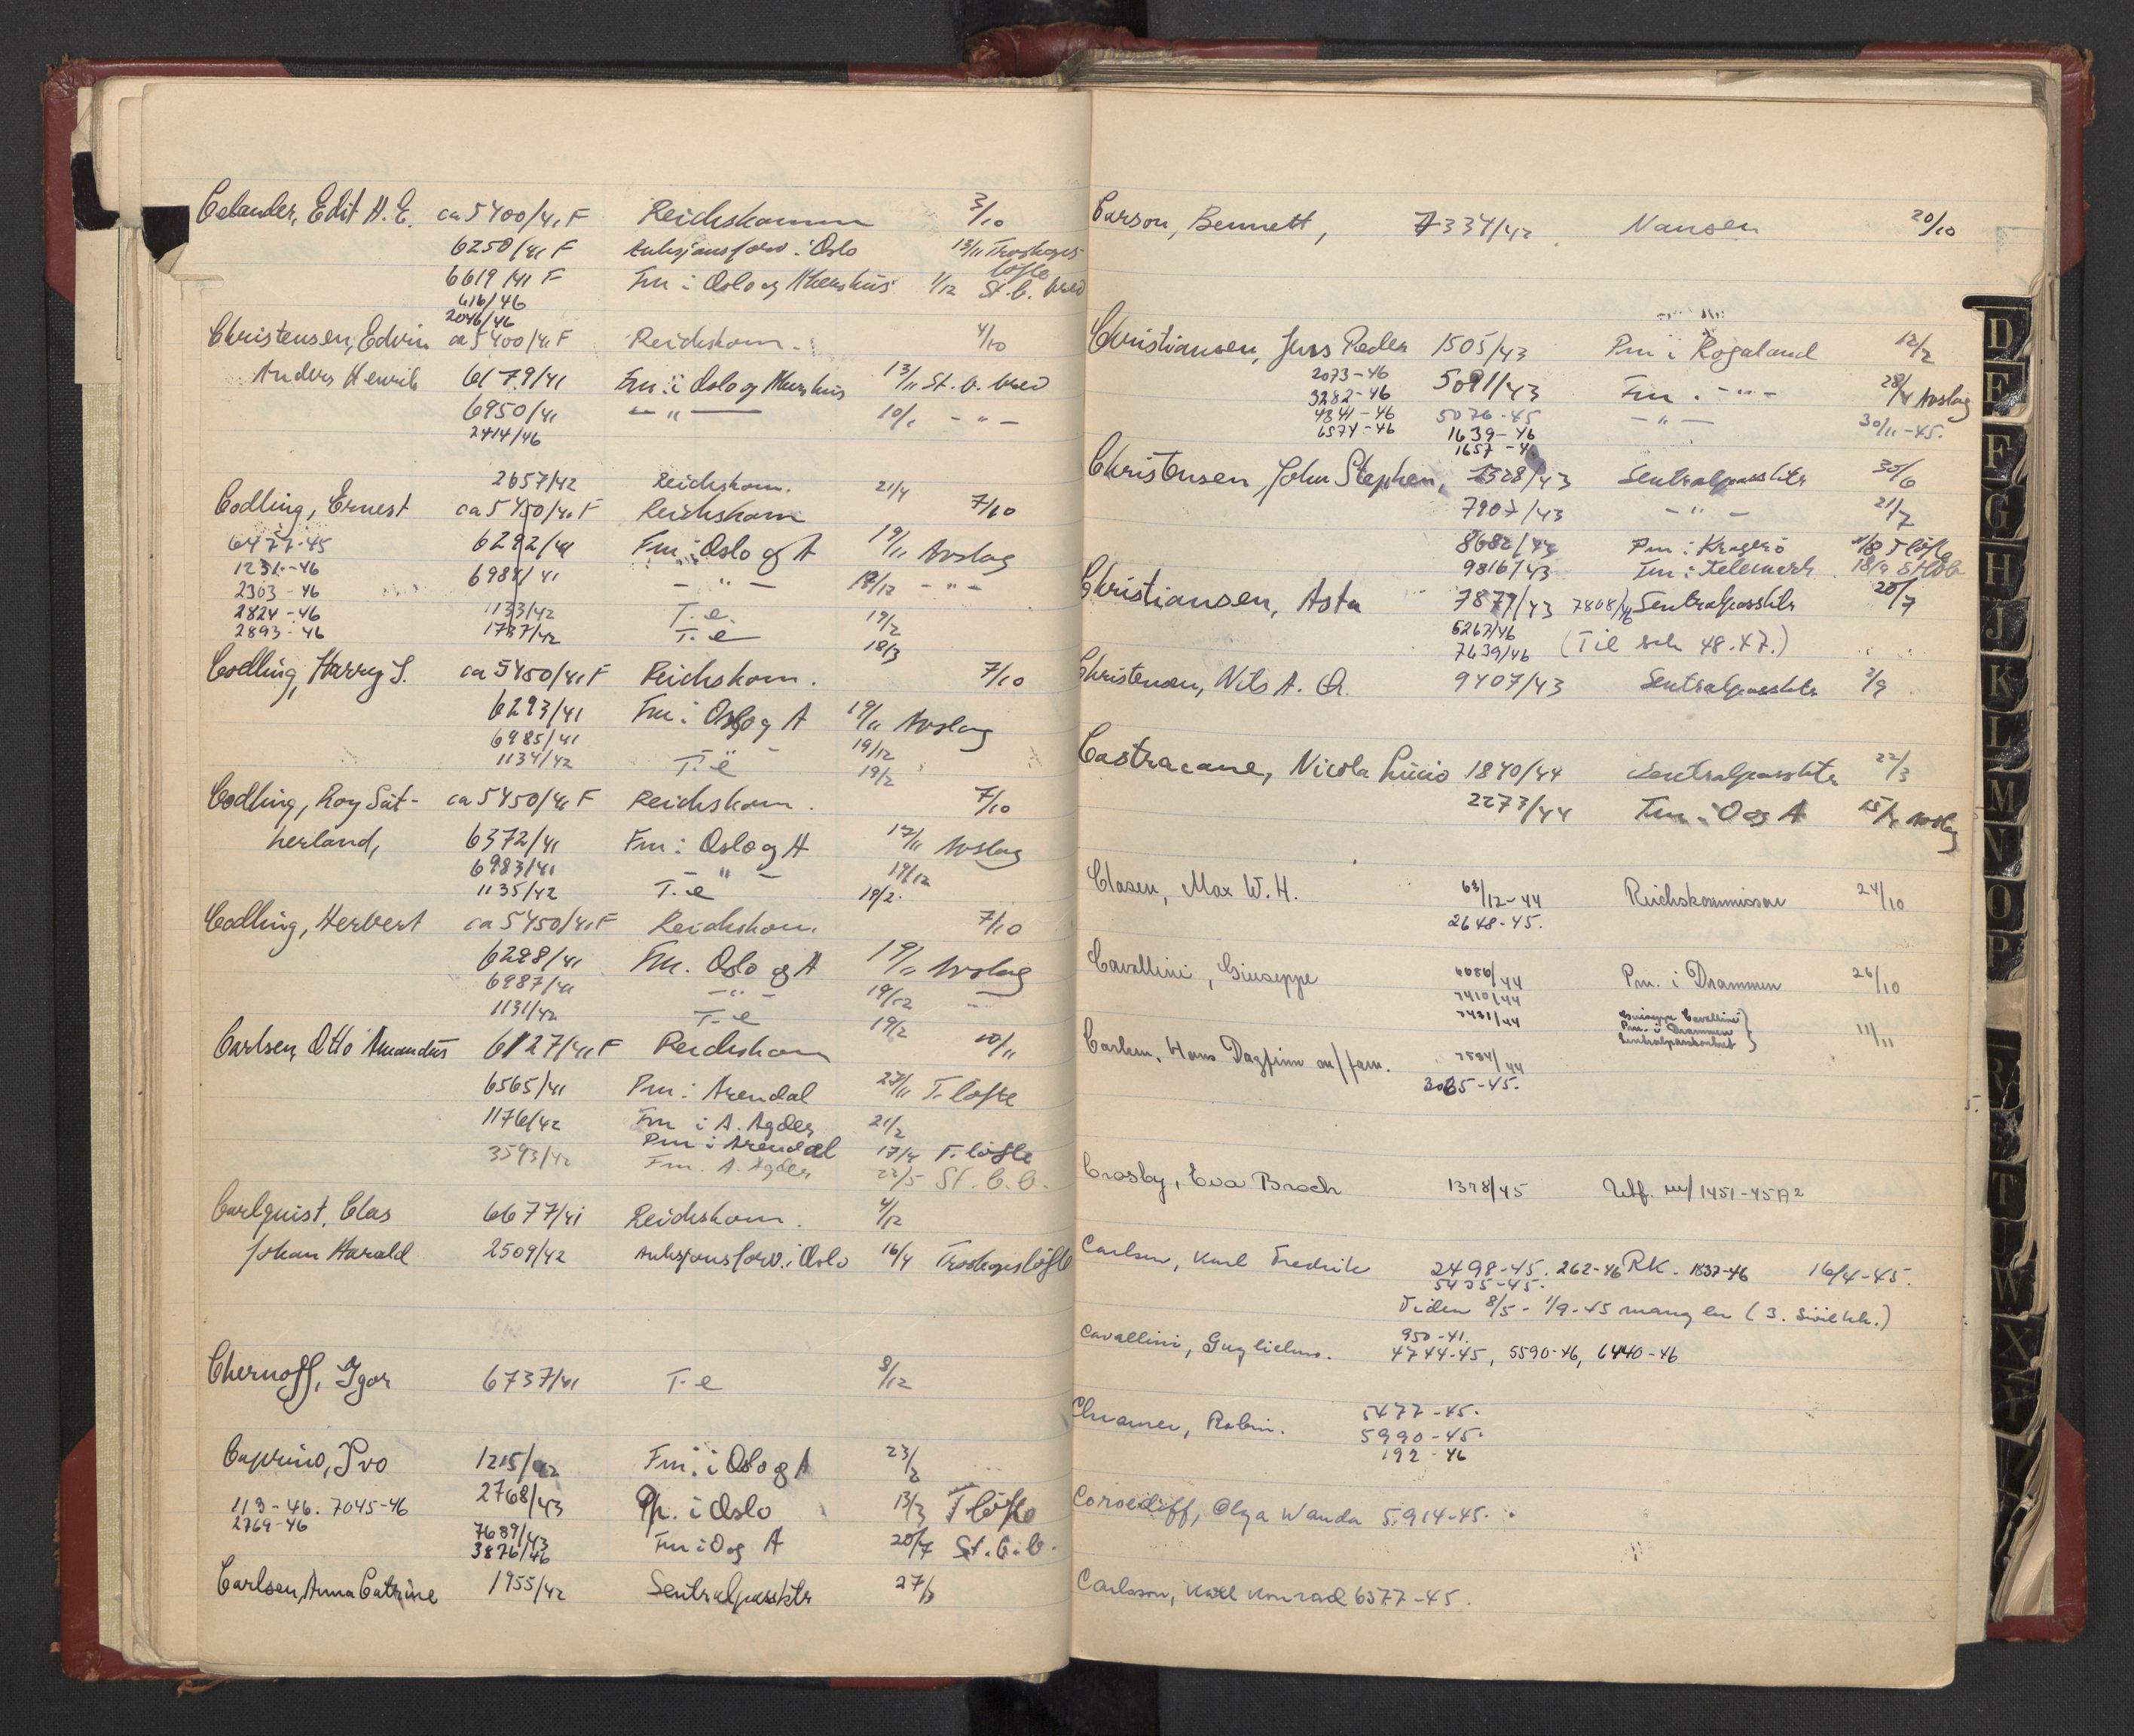 Celander, Edit H. E. ca 5400/41 F Reichskomm 3/10
6250/41 F Auksjonsforv. i Oslo 13/11 Troskaps
løfte
6619/41 F Fm i Oslo og Akershus 1/12 St. b. brev
616/46
2046/46
Christensen, Edvin ca 5400/41 F Reichskom. 4/10
Anders Henrik 6179/41 Fm. i Oslo og Akershus 13/11 St. b. brev
6950/41 — " — 10/1 - " -
2414/46
2657/42 Reichskom. 21/4
Codling, Ernest ca 5450/41 F Reichskom 7/10
6477-45 6292/41 Fm i Oslo og A 19/11 Avslag
1231-46
2303-46 6984/41 - " - 19/12 - " -
2824-46 1133/42 T.e. 19/2
2893-46 1737/42 T.e 18/3
Codling, Harry S. ca 5450/41 F Reichskom. 7/10
6293/41 Fm i Oslo og A 19/11 Avslag
6985/41 - " - 19/12
1134/42 T.e 19/2
Codling, Roy Sut- ca 5450/41 F Reichskom. 7/10
herland, 6372/41 Fm i Oslo og A 19/11 Avslag
6983/41 - " - 19/12
1135/42 T.e 19/2.
Codling, Herbert ca 5450/41 F Reichskom. 7/10
6298/41 Fm. Oslo og A 19/11 Avslag
6987/41 - " - 19/12 - " -
1131/42 T.e 19/2
Carlsen, Otto Amandus 6127/41 F Reichskom 10/11
6565/41 Pm i Arendal 27/11 T. løfte
1176/42 Fm i A. Agder 21/2
Pm i Arendal 17/4 T. løfte
3593/42 Fm. A. Agder 22/5 St. b. b.
Carlquist, Clas 6677/41 Reichskom. 4/12
Johan Harald 2509/42 Auksjonsforv. i Oslo 16/4 Troskapsløfte
Chernoff, Igor 6737/41 T.e 8/12
Caprino, Ivo 1215/42 Fm. i Oslo og A 23/2
113-46. 7045-46 2768/43 Pp. i Oslo 13/3 T løfte
2769-46
7689/43 Fm i O og A 20/7 St. b. b.
3876/46
Carlsen, Anna Catrine 1955/42 Sentralpassktr 27/3
Carson, Bennett, 7334/42 Nansen 20/10
Christiansen, Jens Peder 1505/43 Pm i Rogaland 12/2
2073-46
3282-46 5091/43 Fm. - " - 28/4 Avslag
4841-46 5076-45 - " - 30/11-45.
6574-46 1639-46
1657-46
Christensen, John Stephen, 1328/43 Sentralpassktr 30/6
7907/43 - " - 21/7
8682/43 Pm i Kragerø T løfte
9816/43 Fm i Telemark 18/9
Christiansen, Asta 7879/43 7808/46 Sentralpassktr 20/7
6267/46
7639/46 (Til sak 48.47.)
Christensen, Nils A. 9407/43 Sentralpassktr 2/9
Castracane, Nicola Lucio 1840/44 Sentralpassktr 22/3
2273/44 Fm i O og A 15/4 Avslag
Clasen, Max W. H. 63/12-44 Reichskommissar 24/10
2648-45.
Cavallini, Giuseppe 6086/44 Pm. i Drammen 26/10
7410/44
7431/44 Giuseppe Cavallini
Pm. i Drammen 11/11
Sentralpasskontoret
Carlsen, Hans Dagfinn m/fam. 7594/44
3035-45.
Crosby, Eva Broch 1378/45 Utf. m/1451-45 A2
Carlsen, Karl Fredrik 2498-45. 262-46 RK. 1837-46 16/4-45.
5435-45.
Tiden 8/5 - 1/9-45 mangler (3. sivilkk.)
Cavallini, Guglielmo. 950-41.
4744-45, 5590-46, 6440-46
Chramer, Robin. 5477-45.
5990-45.
192-46
Coroediff, Olga Wanda 5.914-45.
Carlsson, Karl Konrad 6377-45.
D
E
F
G
H
J
K
L
M
N
O
P
R
T
W
X
Y